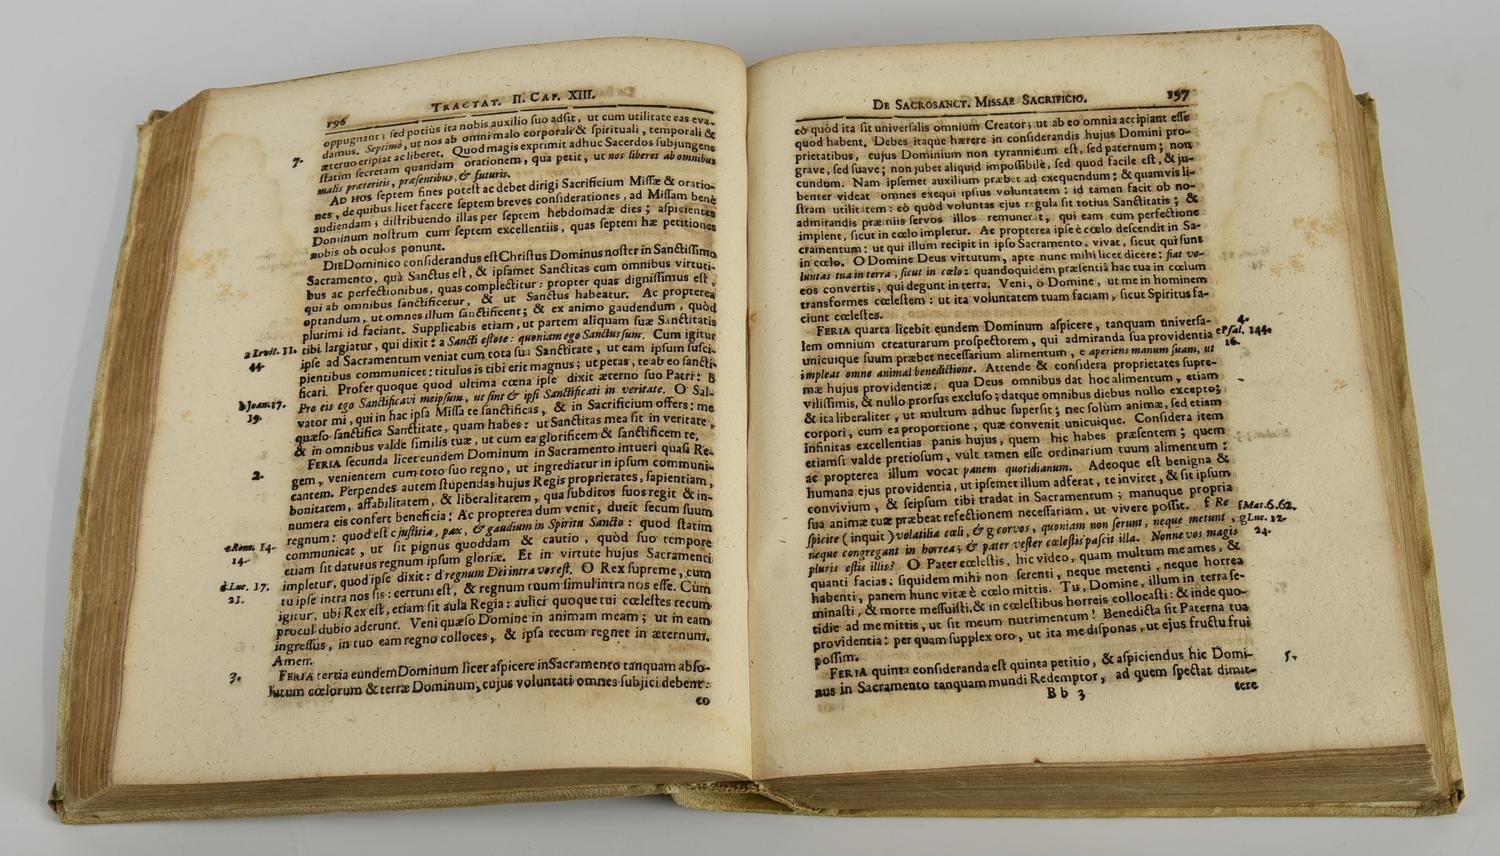 196
TRACTAT. II. CAP. XIII.
oppugnant; sed potius ita nobis auxilio suo adsit, ut cum utilitate eas eva-
damus. Septimò, ut nos ab omni malo corporali & spirituali, temporali &
7.
æterno eripiat ac liberet. Quod magis exprimit adhuc Sacerdos subjungens
statim secretam quandam orationem, qua petit, ut nos liberet ab omnibus
malis præteritis, præsentibus, & futuris.
AD HOS septem fines potest ac debet dirigi Sacrificium Missæ & oratio-
nes, de quibus licet facere septem breves considerationes, ad Missam benè
audiendam; distribuendo illas per septem hebdomadæ dies; aspicientes
Dominum nostrum cum septem excellentiis, quas septem hæ petitiones
nobis ob oculos ponunt.
DIE Dominico considerandus est Christus Dominus noster in Sanctissimo
Sacramento, quà Sanctus est, & ipsamet Sanctitas cum omnibus virtuti-
bus ac perfectionibus, quas complectitur: propter quas dignissimus est,
qui ab omnibus sanctificetur, & ut Sanctus habeatur. Ac propterea
optandum, ut omnes illum sanctificent; & ex animo gaudendum, quòd
plurimi id faciant. Supplicabis etiam, ut partem aliquam suæ Sanctitatis
a Levit. 11.
44.
tibi largiatur, qui dixit: a Sancti estote: quoniam ego Sanctus sum. Cum igitur
ipse ad Sacramentum veniat cum tota sua Sanctitate, ut eam ipsum susci-
pientibus communicet: titulus is tibi erit magnus; ut petas, te ab eo sancti-
ficari. Profer quoque quod ultima cœna ipse dixit æterno suo Patri: b
b Joan. 17.
19.
Pro eis ego Sanctificavi meipsum, ut sint & ipsi Sanctificati in veritate. O Sal-
vator mi, qui in hac ipsa Missa te sanctificas, & in Sacrificium offers: me
quæso sanctifica Sanctitate, quam habes: ut Sanctitas mea sit in veritate,
& in omnibus valde similis tuæ, ut cum ea glorificem & sanctificem te.
2.
FERIA secunda licet eundem Dominum in Sacramento intueri quasi Re-
gem, venientem cum toto suo regno, ut ingrediatur in ipsum communi-
cantem. Perpendes autem stupendas hujus Regis proprietates, sapientiam,
bonitatem, affabilitatem, & liberalitatem, qua subditos suos regit & in-
numera eis confert beneficia: Ac propterea dum venit, ducit secum suum
c Rom. 14.
14.
regnum: quod est c justitia, pax, & gaudium in Spiritu Sancto: quod statim
communicat, ut sit pignus quoddam & cautio, quòd suo tempore
etiam sit daturus regnum ipsum gloriæ. Et in virtute hujus Sacramenti
d Luc. 17.
21.
impletur, quod ipse dixit: d regnum Dei intra vos est. O Rex supreme, cum
tu ipse intra nos sis: certum est, & regnum tuum simul intra nos esse. Cùm
igitur, ubi Rex est, etiam sit aula Regia: aulici quoque tui cœlestes tecum
procul dubio aderunt. Veni quæso Domine in animam meam; ut in eam
ingressus, in tuo eam regno colloces, & ipsa tecum regnet in æternum.
Amen.
3.
FERIA tertia eundem Dominum licet aspicere in Sacramento tanquam abso-
lutum cœlorum & terræ Dominum, cujus voluntati omnes subjici debent:
eo
DE SACROSANCT. MISSAE SACRIFICIO.
197
eò quòd ita sit universalis omnium Creator; ut ab eo omnia accipiant esse
quod habent. Debes itaque hærere in considerandis hujus Domini pro-
prietatibus, cujus Dominium non tyrannicum est, sed paternum; non
grave, sed suave; non jubet aliquid impossibile, sed quod facile est, & ju-
cundum. Nam ipsemet auxilium præbet ad exequendum; & quamvis li-
benter videat omnes exequi ipsius voluntatem: id tamen facit ob no-
stram utilitatem: eò quòd voluntas ejus regula sit totius Sanctitatis; &
admirandis præmiis servos illos remuneret, qui eam cum perfectione
implent, sicut in cœlo impletur. Ac propterea ipse è cœlo descendit in Sa-
cramentum: ut qui illum recipit in ipso Sacramento, vivat, sicut qui sunt
in cœlo. O Domine Deus virtutum, apte nunc mihi licet dicere: fiat vo-
luntas tua in terra, sicut in cœlo: quandoquidem præsentiâ hac tua in cœlum
eos convertis, qui degunt in terra. Veni, ò Domine, ut me in hominem
transformes cœlestem: ut ita voluntatem tuam faciam, sicut Spiritus fa-
ciunt cœlestes.
4.
FERIA quarta licebit eundem Dominum aspicere, tanquam universa-
e Psal. 144.
16.
lem omnium creaturarum prospectorem, qui admiranda sua providentia
unicuique suum præbet necessarium alimentum, e aperiens manum suam, ut
impleat omne animal benedictione. Attende & considera proprietates supre-
mæ hujus providentiæ, qua Deus omnibus dat hoc alimentum, etiam
vilissimis, & nullo prorsus excluso; datque omnibus diebus nullo excepto;
& ita liberaliter, ut multum adhuc supersit; nec solùm animæ, sed etiam
corpori, cum ea proportione, quæ convenit unicuique. Considera item
infinitas excellentias panis hujus, quem hic habes præsentem; quem
etiamsi valde pretiosum, vult tamen esse ordinarium tuum alimentum:
ac propterea illum vocat panem quotidianum. Adeoque est benigna &
humana ejus providentia, ut ipsemet illum adferat, te invitet, & sit ipsum
convivium, & seipsum tibi tradat in Sacramentum; manuque propria
sua animæ tuæ præbeat refectionem necessariam, ut vivere possit. f Re
f Mat. 6. 62.
g Luc. 12.
24.
spicite (inquit) volatilia cœli, & g corvos, quoniam non serunt, neque metunt,
neque congregant in horrea; & pater vester cœlestis pascit illa. Nonne vos magis
pluris estis illis? O Pater cœlestis, hic video, quam multum me ames, &
quanti facias: siquidem mihi non serenti, neque metenti, neque horrea
habenti, panem hunc vitæ è cœlo mittis. Tu, Domine, illum in terra se-
minasti, & morte messuisti, & in cœlestibus horreis collocasti: & inde quo-
tidie ad me mittis, ut sit meum nutrimentum! Benedicta sit Paterna tua
providentia: per quam supplex oro, ut ita me disponas, ut ejus fructu frui
possim.
5.
FERIA quinta consideranda est quinta petitio, & aspiciendus hic Domi-
nus in Sacramento tanquam mundi Redemptor, ad quem spectat dimit-
Bb 3
tere